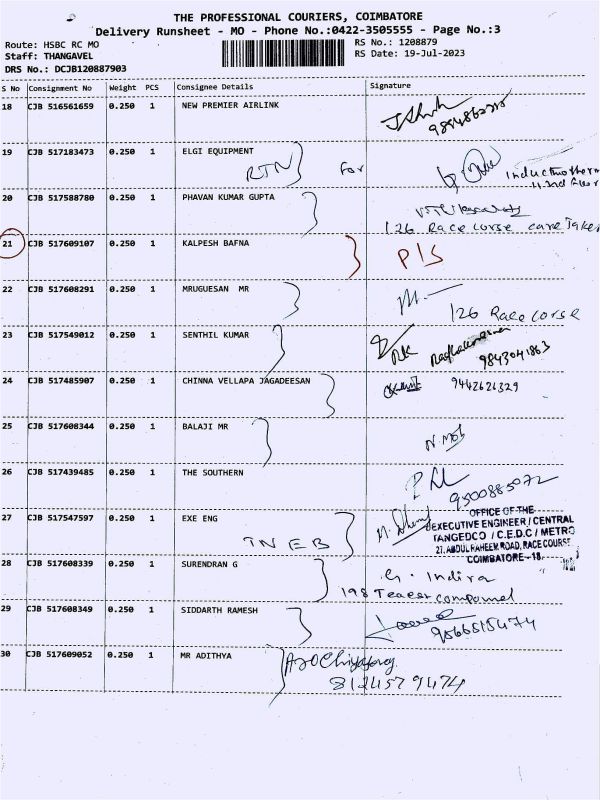 THE PROFESSIONAL COURIERS, COIMBATORE
Delivery Runsheet - MO - Phone No.:0422-3505555 - Page No.:3
Route: HSBC RC MO
RS No.: 1208879
Staff: THANGAVEL
RS Date: 19-Jul-2023
DRS No.: DCJB120887903
S No Consignment No Weight PCS Consignee Details Signature
18 CJB 516561659 0.250 1 NEW PREMIER AIRLINK
19 CJB 517183473 0.250 1 ELGI EQUIPMENT
RTN For
20 CJB 517588780 0.250 1 PHAVAN KUMAR GUPTA
126 Race corse care Taker
21 CJB 517609107 0.250 1 KALPESH BAFNA
P/S
22 CJB 517608291 0.250 1 MRUGUESAN MR
126 Race corse
23 CJB 517549012 0.250 1 SENTHIL KUMAR
9843041863
24 CJB 517485907 0.250 1 CHINNA VELLAPA JAGADEESAN
9442626329
25 CJB 517608344 0.250 1 BALAJI MR
26 CJB 517439485 0.250 1 THE SOUTHERN
9500885072
27 CJB 517547597 0.250 1 EXE ENG
TNEB
OFFICE OF THE
EXECUTIVE ENGINEER / CENTRAL
TANGEDCO / C.E.D.C / METRO
27, ABDUL RAHEEM ROAD, RACE COURSE
COIMBATORE-18.
28 CJB 517608339 0.250 1 SURENDRAN G
G. Indira
29 CJB 517608349 0.250 1 SIDDARTH RAMESH
9566515474
30 CJB 517609052 0.250 1 MR ADITHYA
8124579474